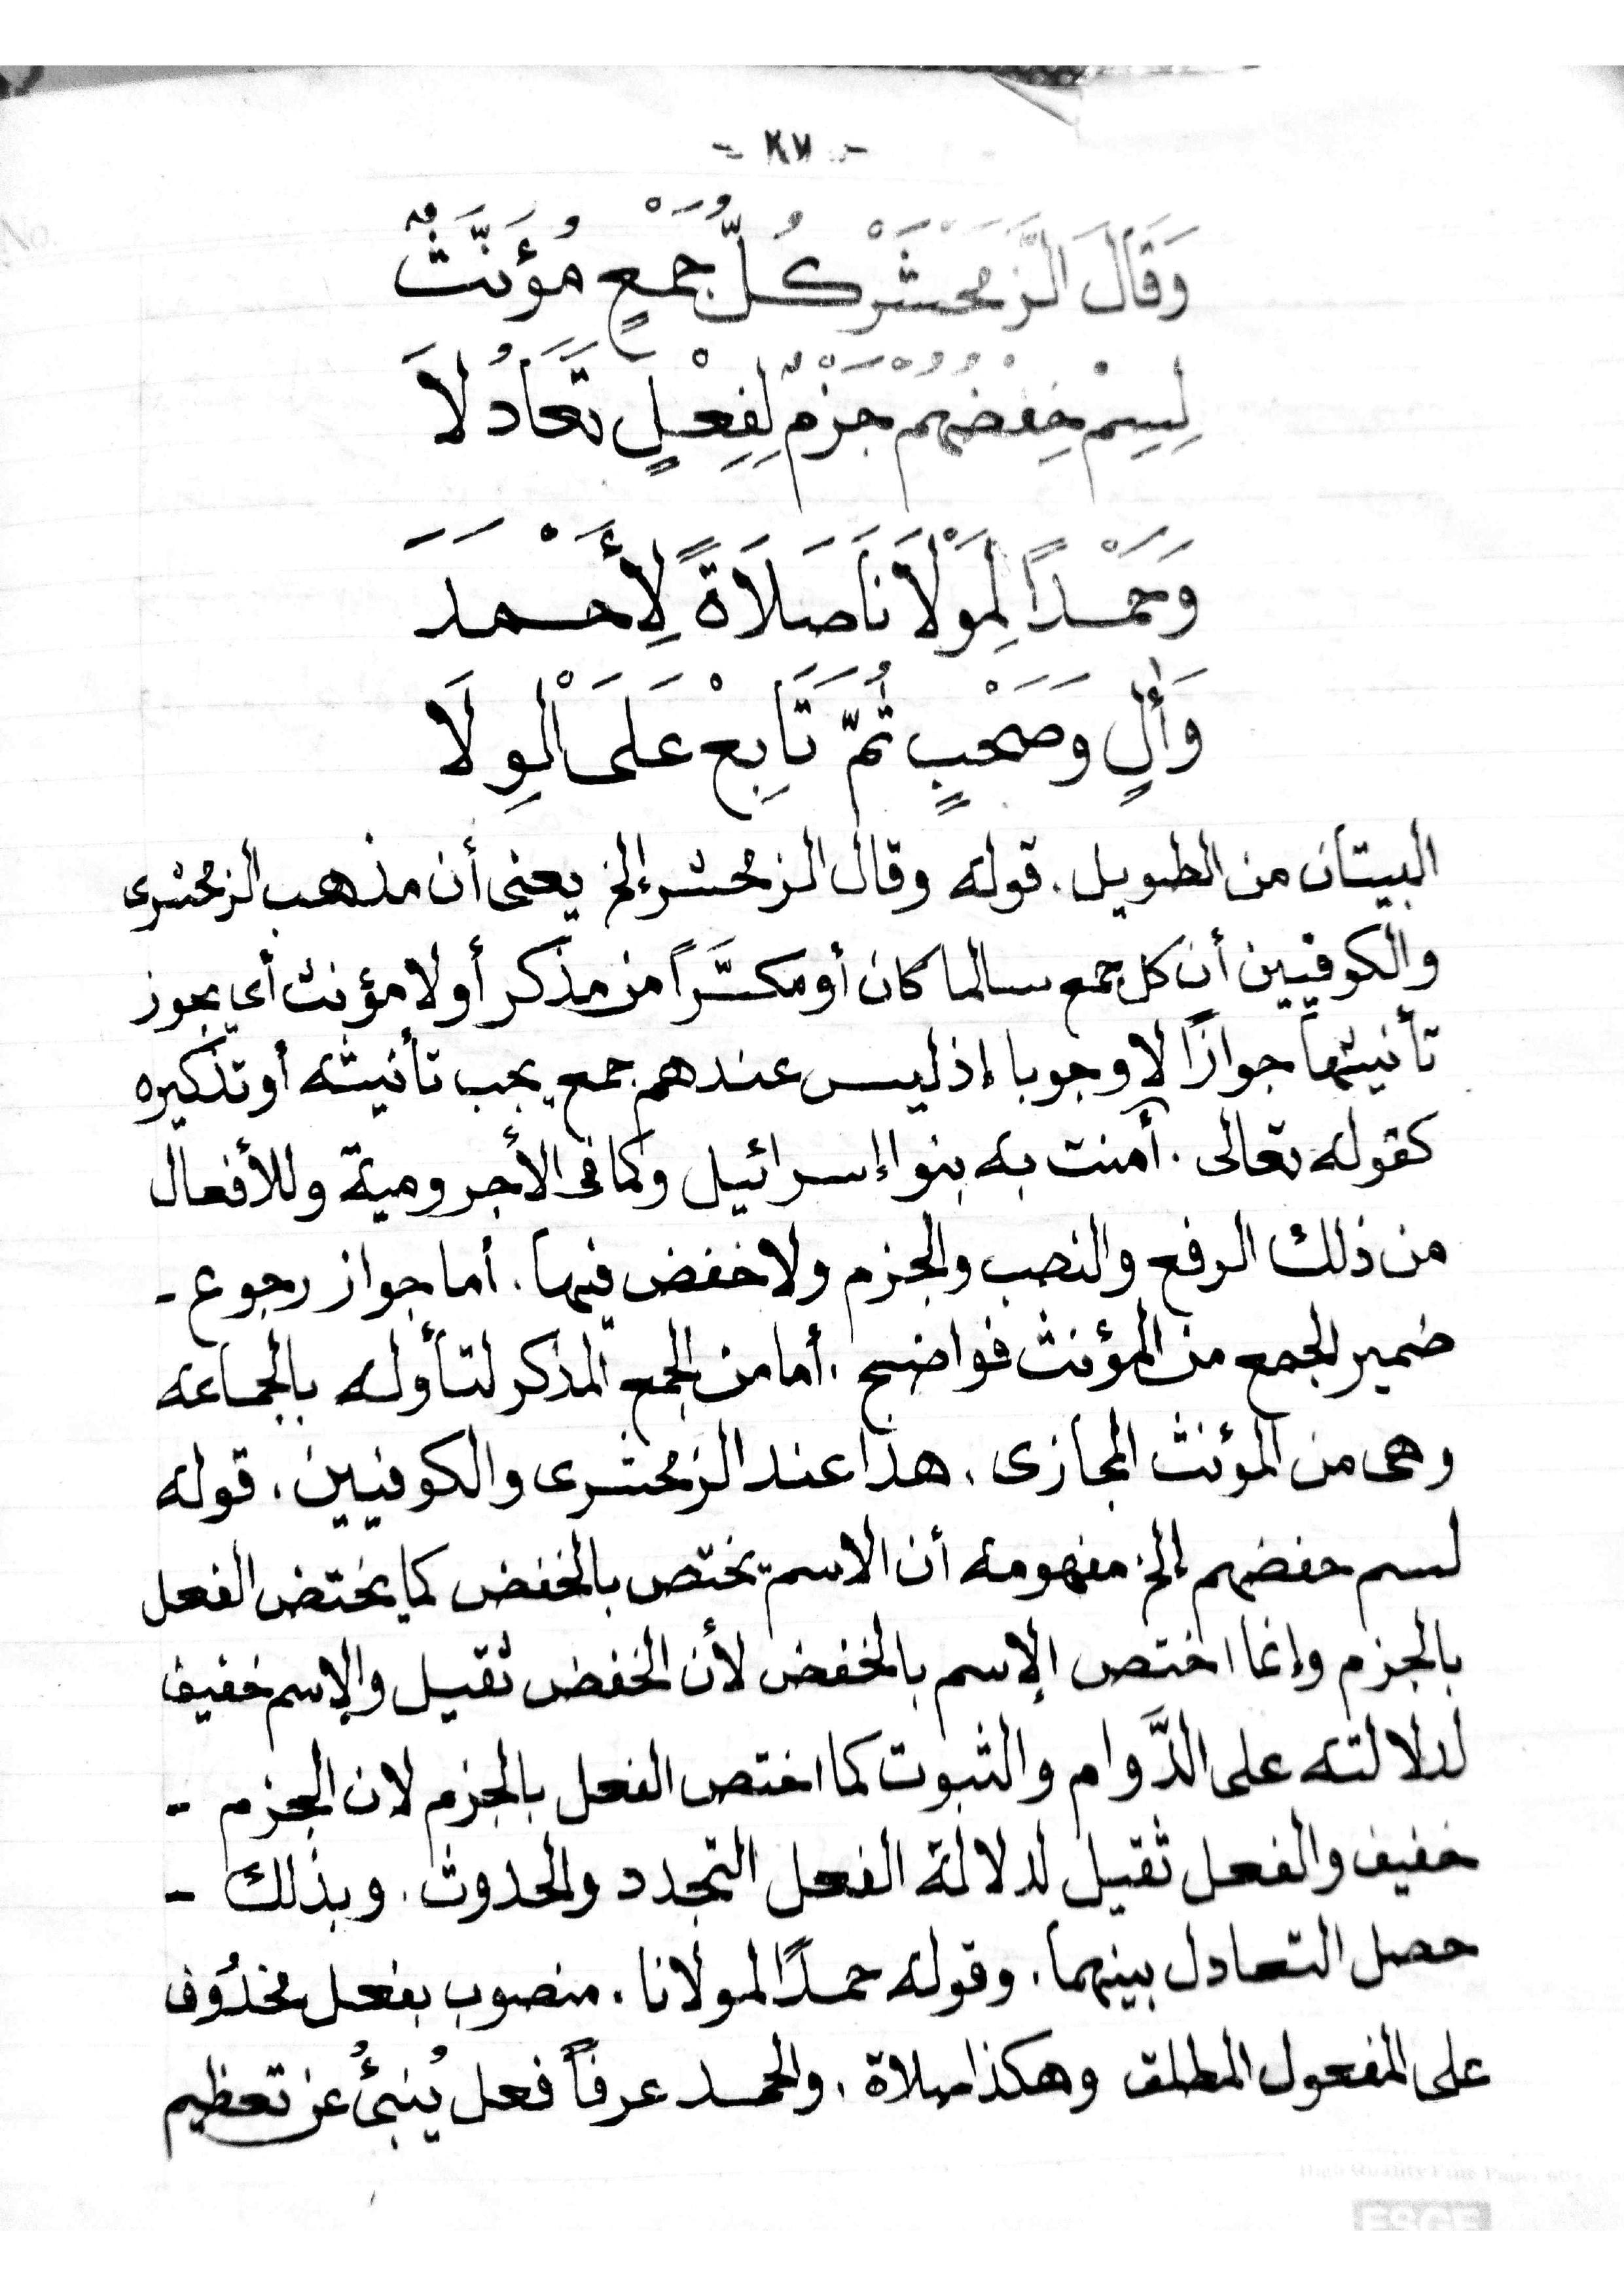 - ٢٧ -
وَقَالَ الزَّمَخْشَرْ كُلُّ جَمْعٍ مُؤَنَّثٌ
لِسِمْ خِفْضُهُمْ جَزْمٌ لِفِعْلٍ تَعَادُلَا
وَحَمْدًا لِمَوْلَانَا صَلَاةً لِأَحْمَدَ
وَأٰلٍ وَصَحْبٍ ثُمَّ تَابِعْ عَلَى الْوِلَا
البيتان من الطويل . قوله وقال الزمخشر إلخ يعنى أن مذهب الزمخشرى
والكوفيين أن كل جمع سالما كان أو مكسَّرًا من مذكر أو لا مؤنث أي يجوز
تأنيثها جوازًا لا وجوبا إذ ليس عندهم جمع يجب تأنيثه أو تذكيره
كقوله تعالى . آمنت به بنوا إسرائيل وكما فى الأجرومية وللأفعال
من ذلك الرفع والنصب والجزم ولا خفض فيها . أما جواز رجوع -
ضمير الجمع من المؤنث فواضح . أما من الجمع المذكر لتأوله بالجماعه
وهى من المؤنث المجازى . هذا عند الزمخشرى والكوفيين . قوله
لسم خفضهم إلخ مفهومه أن الاسم يختص بالخفض كما يختض الفعل
بالجزم وإنما اختص الإسم بالخفض لأن الخفض ثقيل والإسم خفيف
لدلالته على الدَّوام والثبوت كما اختص الفعل بالجزم لان الجزم -
خفيف والفعل ثقيل لدلالة الفعل التجدد والحدوث . وبذلك -
حصل التعادل بينهما . وقوله حمدًا لمولانا . منصوب بفعل مخذُوف
على المفعول المطلق وهكذا صلاة . والحمد عرفاً فعل يُنبئُ عن تعظيم